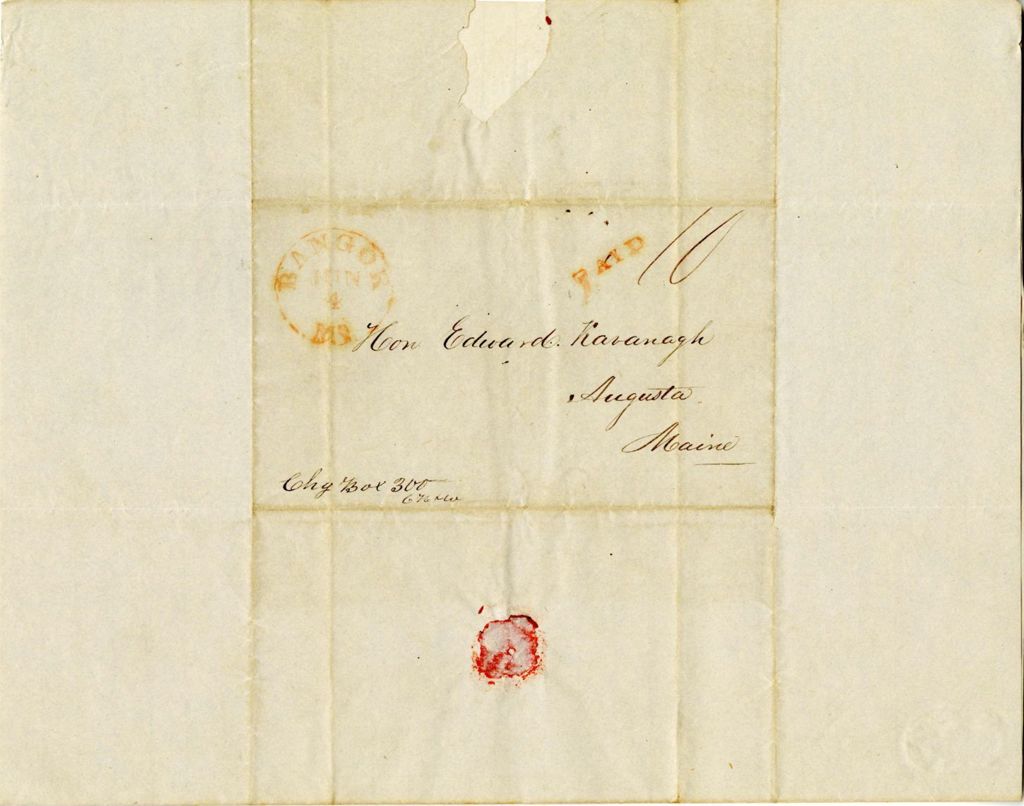 BANGOR
JUN
4
ME
PAID
10
Hon Edward. Kavanagh
Augusta
Maine
Chg Box 300